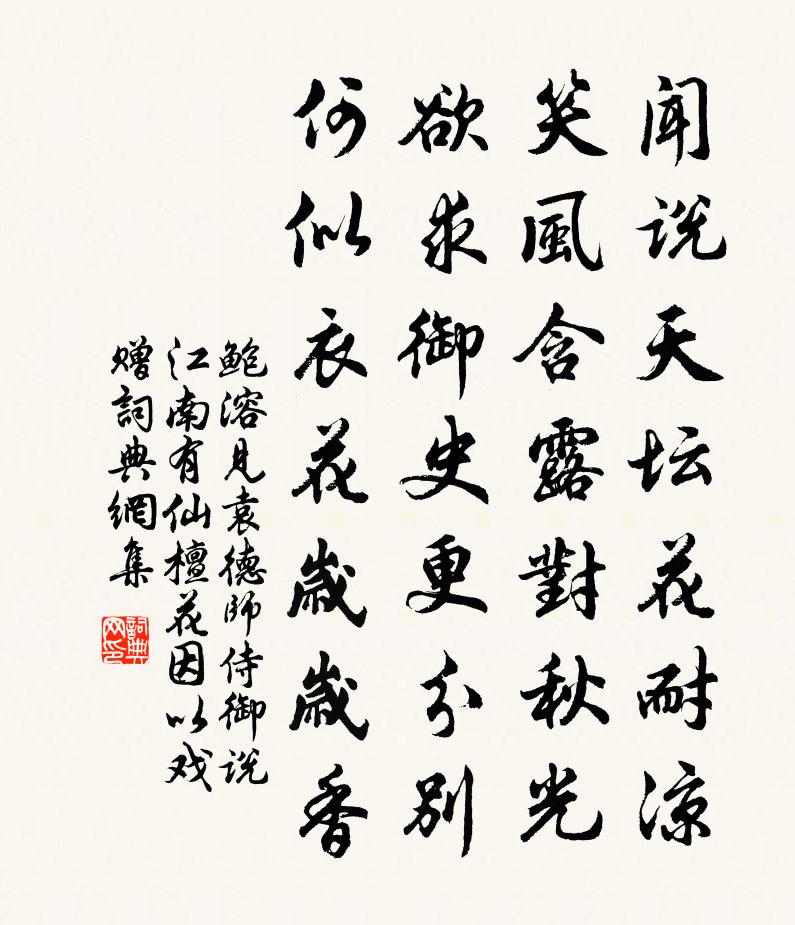 闻说天坛花耐凉
笑風含露對秋光
欲求御史更分别
何似衣花歲歲香
鲍溶見袁德師侍御说
江南有仙檀花因以戏
赠詞典網集
詞典
网印